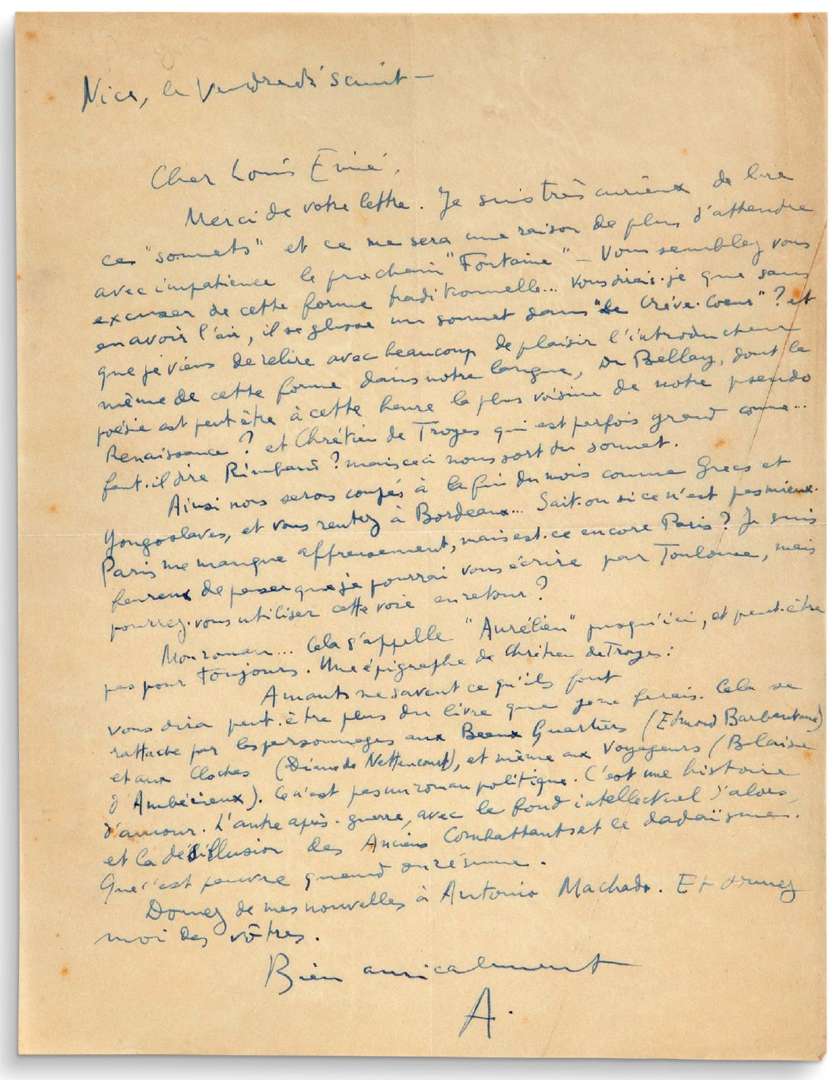 Nice, le Vendredi saint –
Cher Louis Emié,
Merci de votre lettre. Je suis très curieux de lire
ces "sonnets" et ce me sera une raison de plus d'attendre
avec impatience le prochain "Fontaine" – Vous semblez vous
excuser de cette forme traditionnelle... Vous dirais-je que sans
en avoir l'air, il se glisse un sonnet dans "Le Crève-Coeur" ? et
que je viens de relire avec beaucoup de plaisir l'introducteur
même de cette forme dans notre langue, Du Bellay, dont la
poésie est peut être à cette heure la plus voisine de notre pseudo
Renaissance ? et Chrétien de Troyes qui est parfois grand comme...
faut-il dire Rimbaud ? mais ceci nous sort du sonnet.
Ainsi nous serons coupés à la fin du mois comme Grecs et
Yougoslaves, et vous rentrez à Bordeaux... Sait-on si ce n'est pas mieux.
Paris me manque affreusement, mais est-ce encore Paris ? Je suis
heureux de penser que je pourrai vous écrire par Toulouse, mais
pourrez-vous utiliser cette voie en retour ?
Mon roman... Cela s'appelle "Aurélien" jusqu'ici, et peut-être
pas pour toujours. Une épigraphe de Chrétien de Troyes :
Amants ne savent ce qu'ils font
vous dira peut-être plus du livre que je ne ferais. Cela se
rattache par les personnages aux Beaux Quartiers (Edmond Barbentane)
et aux Cloches (Diane de Nettencourt), et même aux Voyageurs (Blaise
d'Ambérieux). Ce n'est pas un roman politique. C'est une histoire
d'amour. L'autre après-guerre, avec le fond intellectuel d'alors,
et la désillusion des Anciens Combattants et le dadaïsme.
Que c'est pauvre quand on résume.
Donnez de mes nouvelles à Antonio Machado. Et donnez
moi des vôtres.
Bien amicalement
A.